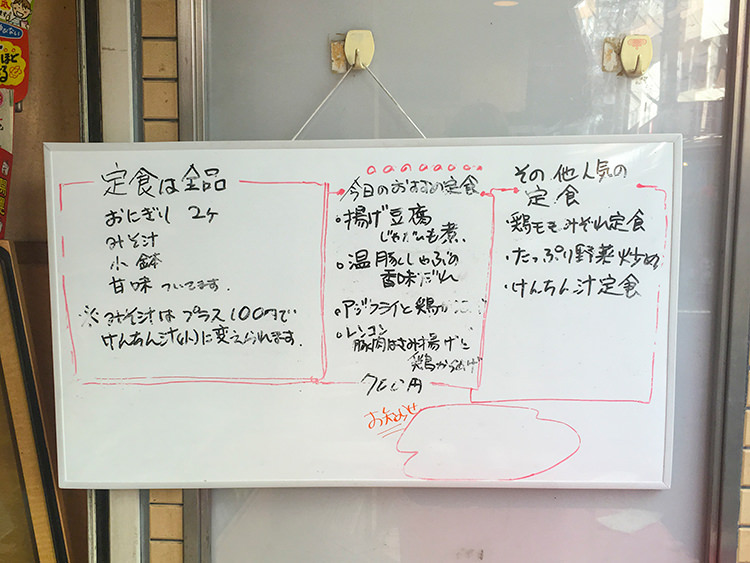 定食は全品
おにぎり 2ヶ
みそ汁
小鉢
甘味 ついてます。
※みそ汁はプラス100円で
けんちん汁(小)に変えられます。
今日のおすすめ定食
・揚げ豆腐
じゃがいも煮
・温豚しゃぶの
香味だれ
・アジフライと鶏
・レンコン
豚肉はさみ揚げと
鶏からあげ
円
お知らせ
その他人気の
定食
・鶏モモみぞれ定食
・たっぷり野菜炒め
・けんちん汁定食